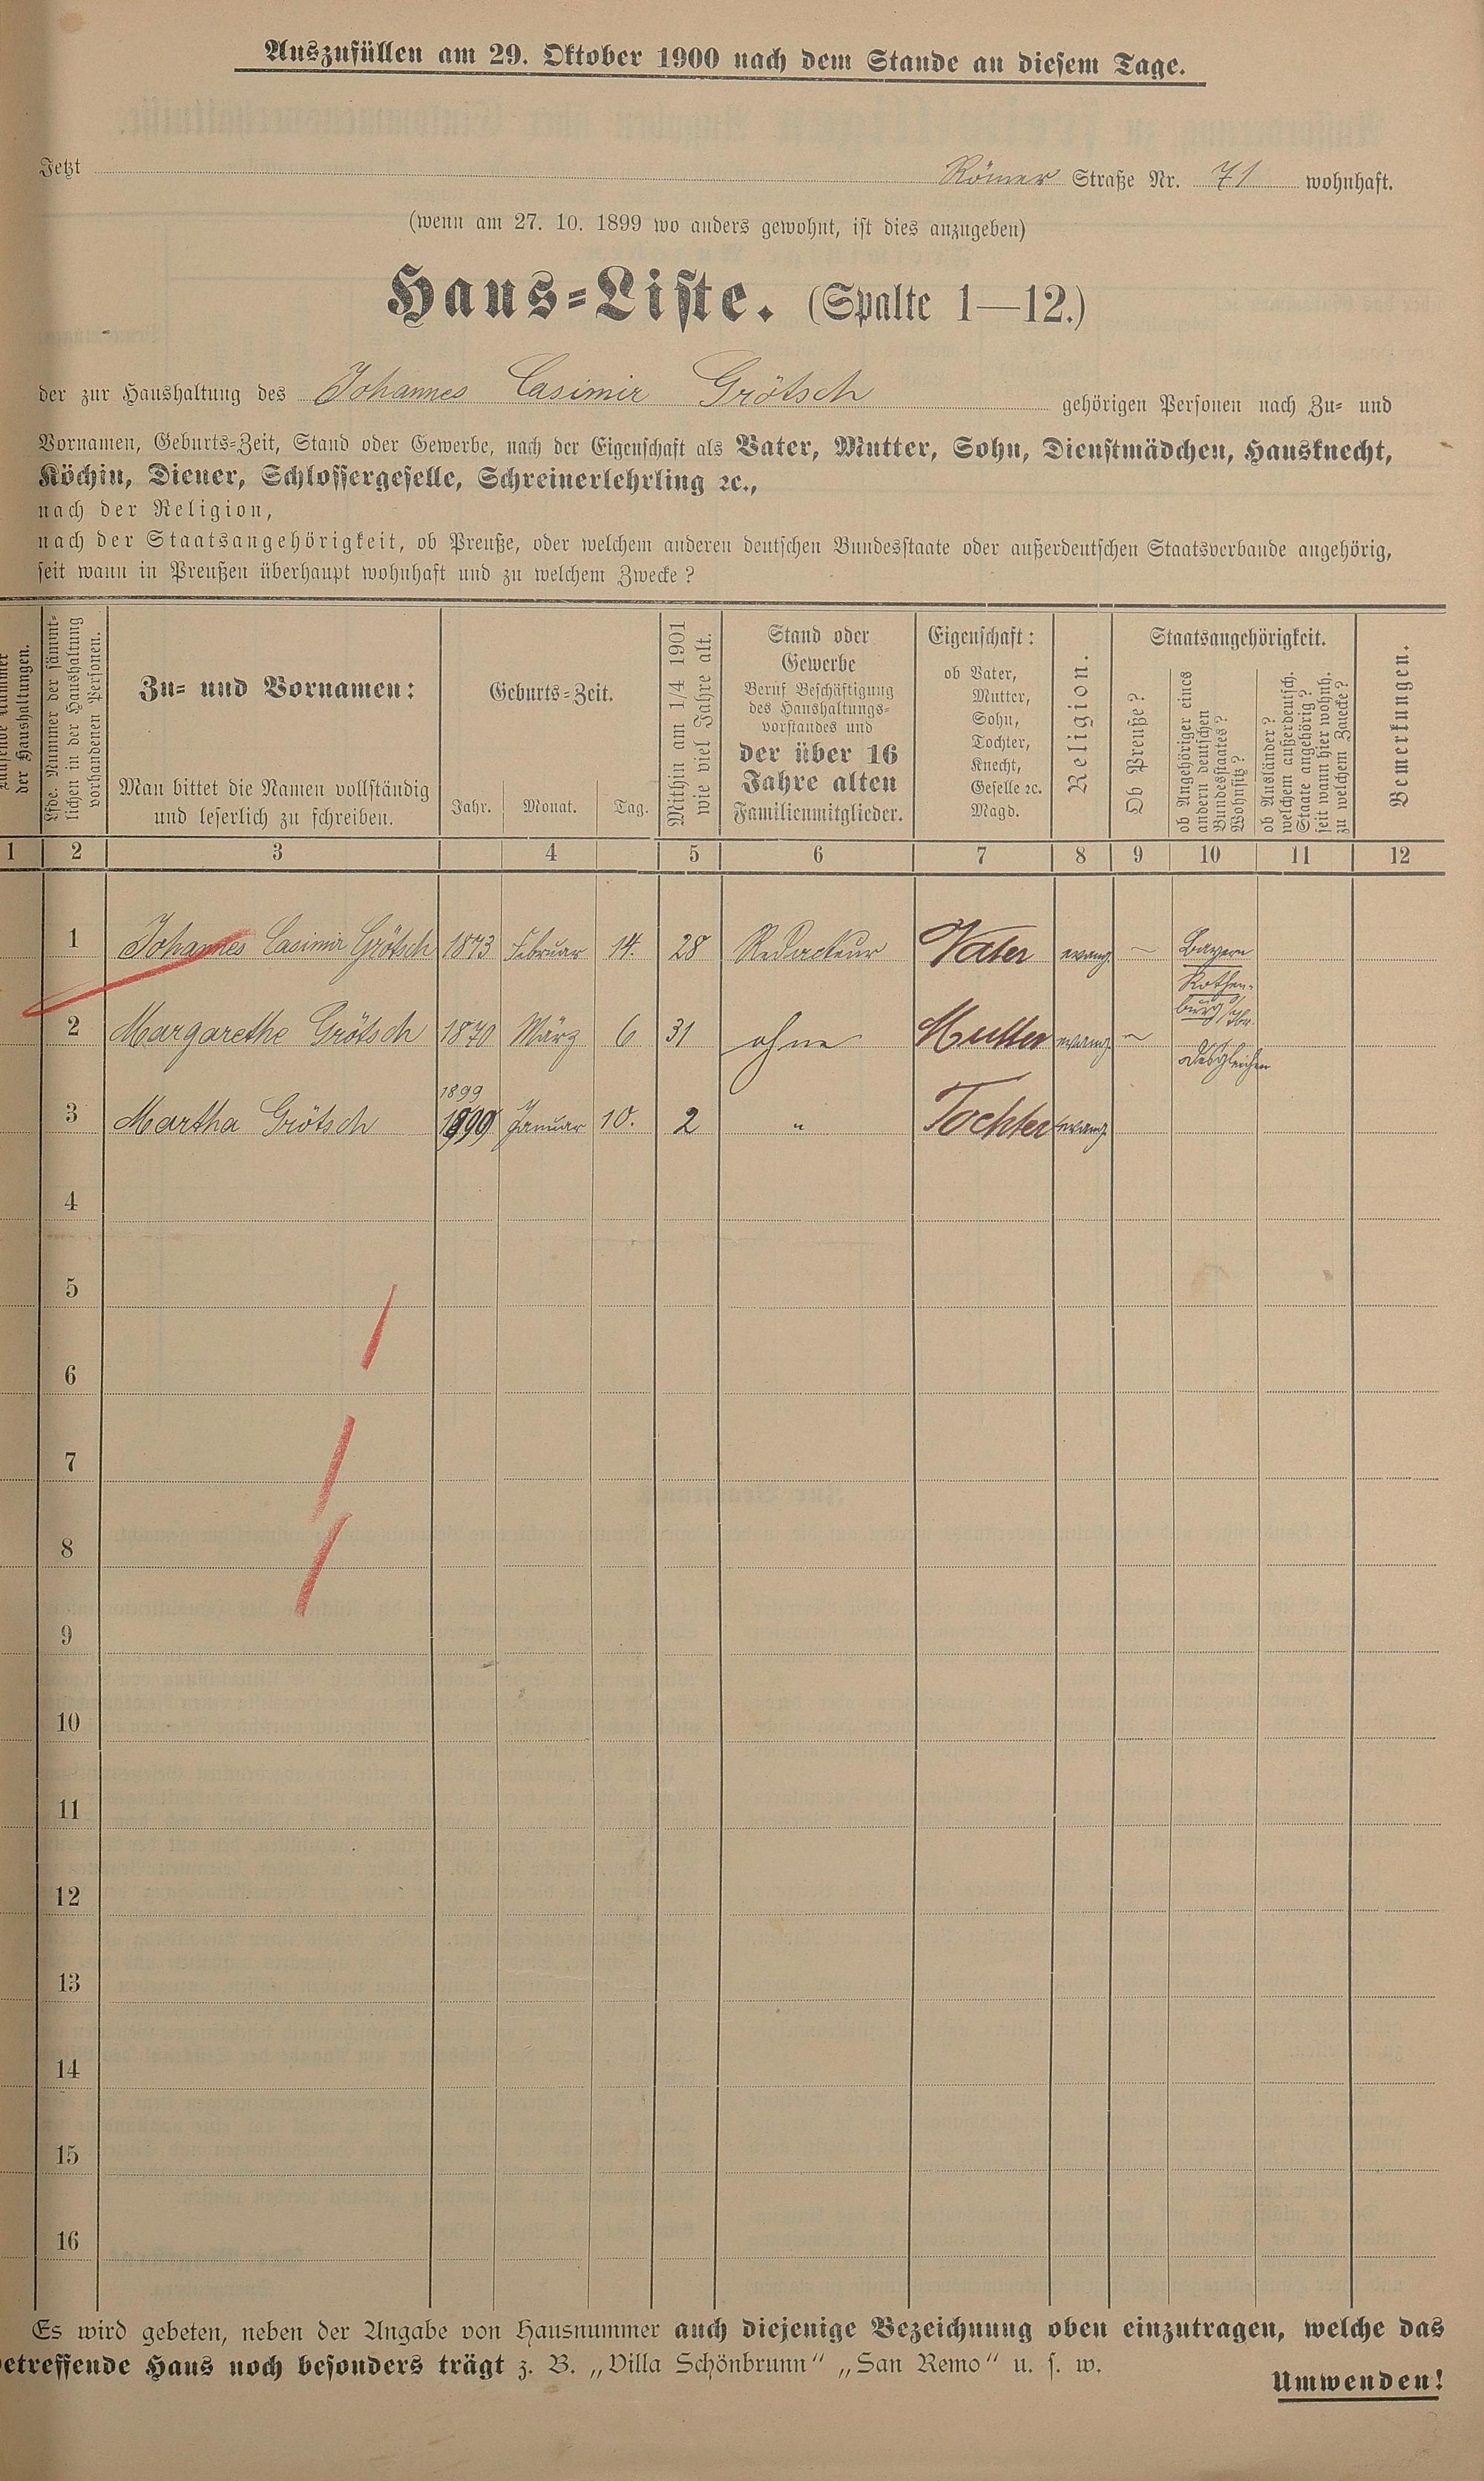 Auszufüllen am 29. Oktober 1900 nach dem Stande an diesem Tage.
Jetzt Römer Straße Nr. 71 wohnhaft.
(wenn am 27. 10. 1899 wo anders gewohnt, ist dies anzugeben)
Haus-Liste. (Spalte 1—12.)
der zur Haushaltung des Johannes Casimir Grötsch gehörigen Personen nach Zu- und
Vornamen, Geburts-Zeit, Stand oder Gewerbe, nach der Eigenschaft als Vater, Mutter, Sohn, Dienstmädchen, Hausknecht,
Köchin, Diener, Schlossergeselle, Schreinerlehrling ꝛc.,
nach der Religion,
nach der Staatsangehörigkeit, ob Preuße, oder welchem anderen deutschen Bundesstaate oder außerdeutschen Staatsverbande angehörig,
seit wann in Preußen überhaupt wohnhaft und zu welchem Zwecke?
der Haushaltungen.
Lfde. Nummer der sämmt-
lichen in der Haushaltung
vorhandenen Personen.
Zu- und Vornamen:
Man bittet die Namen vollständig
und leserlich zu schreiben.
Geburts-Zeit.
Jahr. Monat. Tag.
Mithin am 1/4 1901
wie viel Jahre alt.
Stand oder
Gewerbe
Beruf Beschäftigung
des Haushaltungs-
vorstandes und
der über 16
Jahre alten
Familienmitglieder.
Eigenschaft:
ob Vater,
Mutter,
Sohn,
Tochter,
Knecht,
Geselle ꝛc.
Magd.
Religion.
Staatsangehörigkeit.
Ob Preuße?
ob Angehöriger eines
andern deutschen
Bundesstaates?
Wohnsitz?
ob Ausländer?
welchem außerdeutsch.
Staate angehörig?
seit wann hier wohnh.
zu welchem Zwecke?
Bemerkungen.
1 2 3 4 5 6 7 8 9 10 11 12
1 Johannes Casimir Grötsch 1873 Februar 14. 28 Redacteur Vater evang. – Bayern
Rothen-
burg/Tbr.
2 Margarethe Grötsch 1870 März 6 31 ohne Mutter evang. – desgleichen
1899
3 Martha Grötsch 1899 Januar 10. 2 " Tochter evang.
4
5
6
7
8
9
10
11
12
13
14
15
16
Es wird gebeten, neben der Angabe von Hausnummer auch diejenige Bezeichnung oben einzutragen, welche das
etreffende Haus noch besonders trägt z. B. „Villa Schönbrunn“ „San Remo“ u. s. w.
Umwenden!